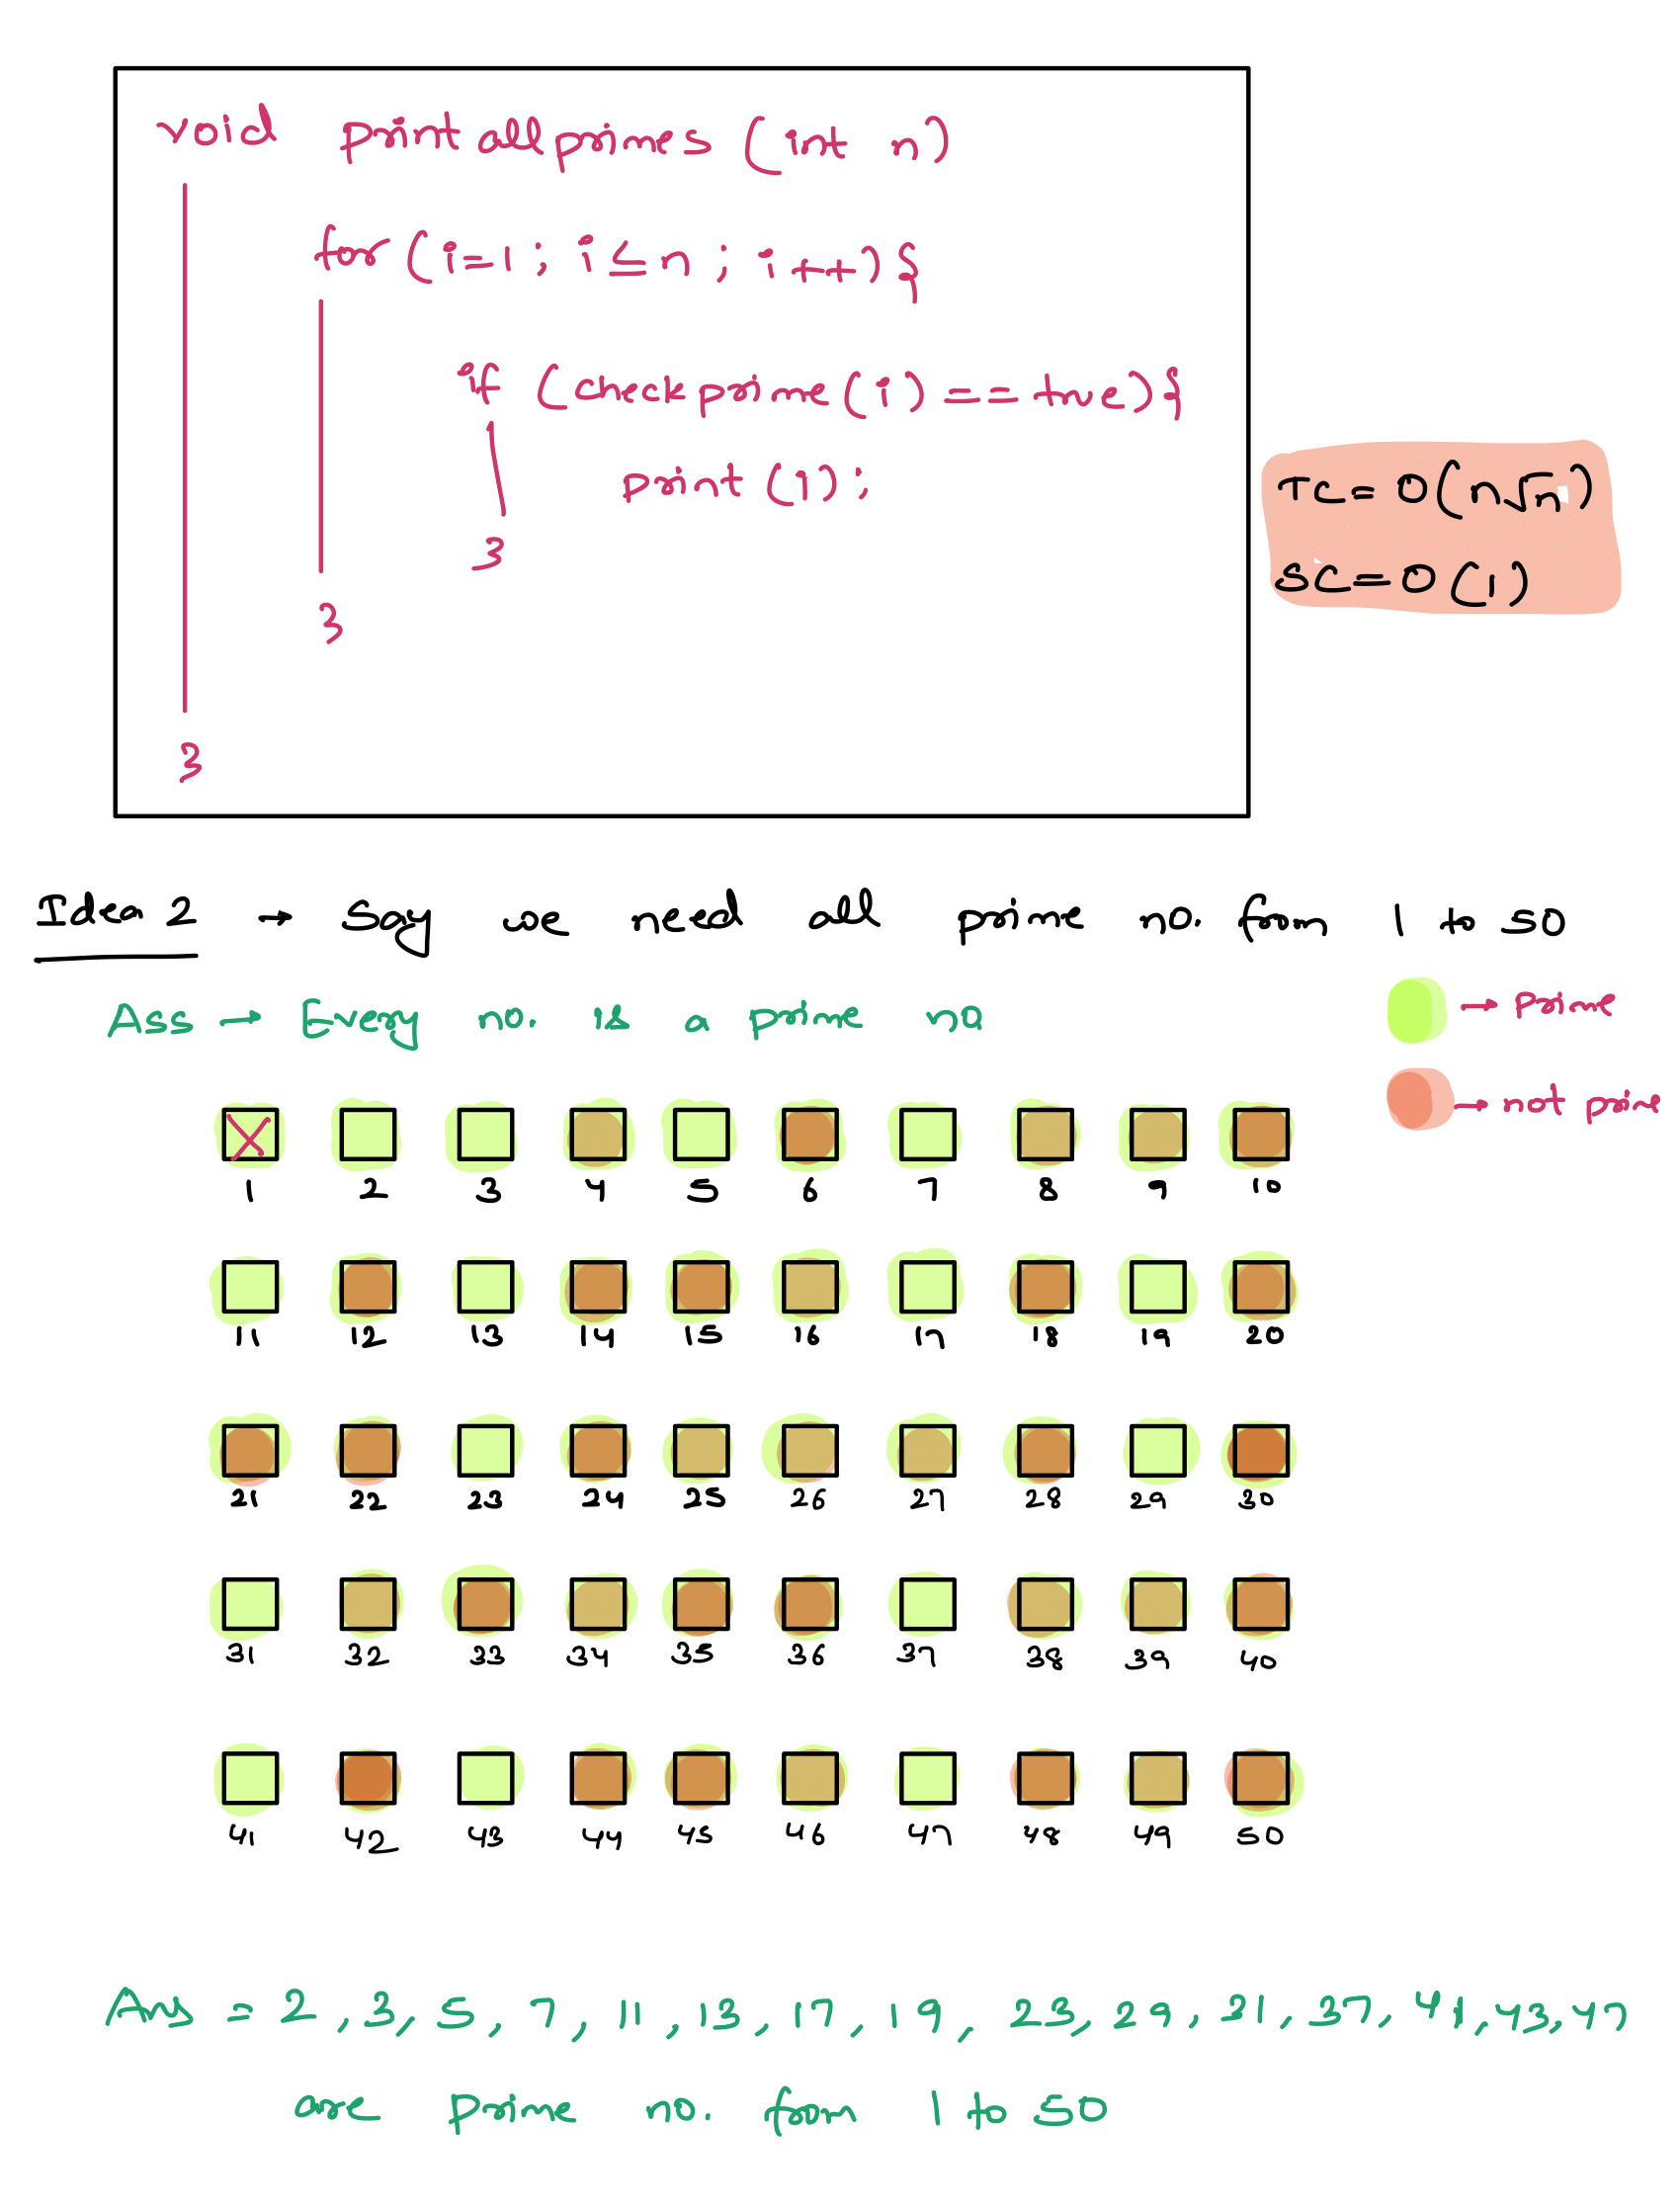 void printallprimes (int n)
for (i=1; i≤n; i++){
if (checkprime(i) == true){
print(i);
}
}
}
TC = O(n√n)
SC = O(1)
Idea 2 → Say we need all prime no. from 1 to 50
Ass → Every no. is a prime no
→ Prime
→ not prime
1 2 3 4 5 6 7 8 9 10
11 12 13 14 15 16 17 18 19 20
21 22 23 24 25 26 27 28 29 30
31 32 33 34 35 36 37 38 39 40
41 42 43 44 45 46 47 48 49 50
Ans = 2, 3, 5, 7, 11, 13, 17, 19, 23, 29, 31, 37, 41, 43, 47
are prime no. from 1 to 50